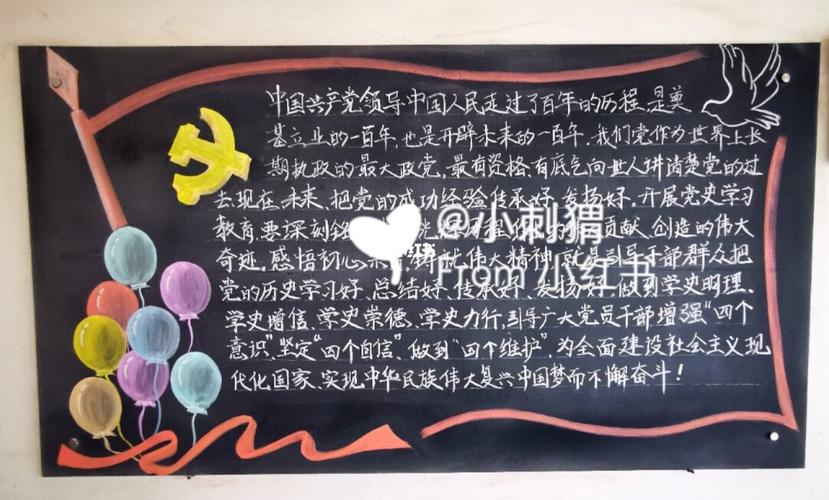 中国共产党领导中国人民走过了百年的历程,是奠
基立业的一百年,也是开辟未来的一百年.我们党作为世界上长
期执政的最大政党,最有资格、有底气向世人讲清楚党的过
去、现在、未来,把党的成功经验传承好、发扬好.开展党史学习
教育,要深刻铭 历程 贡献、创造的伟大
奇迹,感悟初心 铸就伟大精神,就是引导干部群众把
党的历史学习好、总结好、传承好、发扬好,做到学史明理、
学史增信、学史崇德、学史力行,引导广大党员干部增强“四个
意识”、坚定“四个自信”、做到“四个维护”,为全面建设社会主义现
代化国家、实现中华民族伟大复兴中国梦而不懈奋斗!
@小刺猬
From 小红书